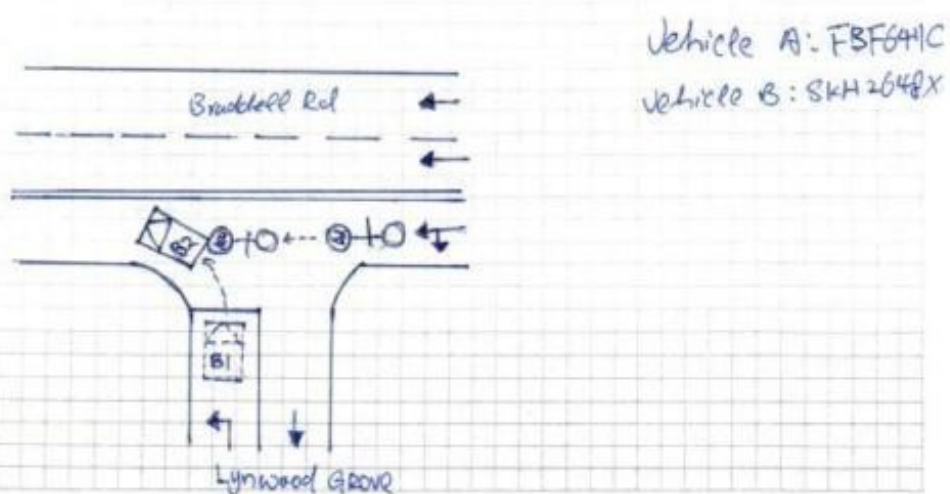 Vehicle A: FBF6441C
Vehicle B: SKH2648X
Braddell Rd
B2
B1
Lynwood Grove